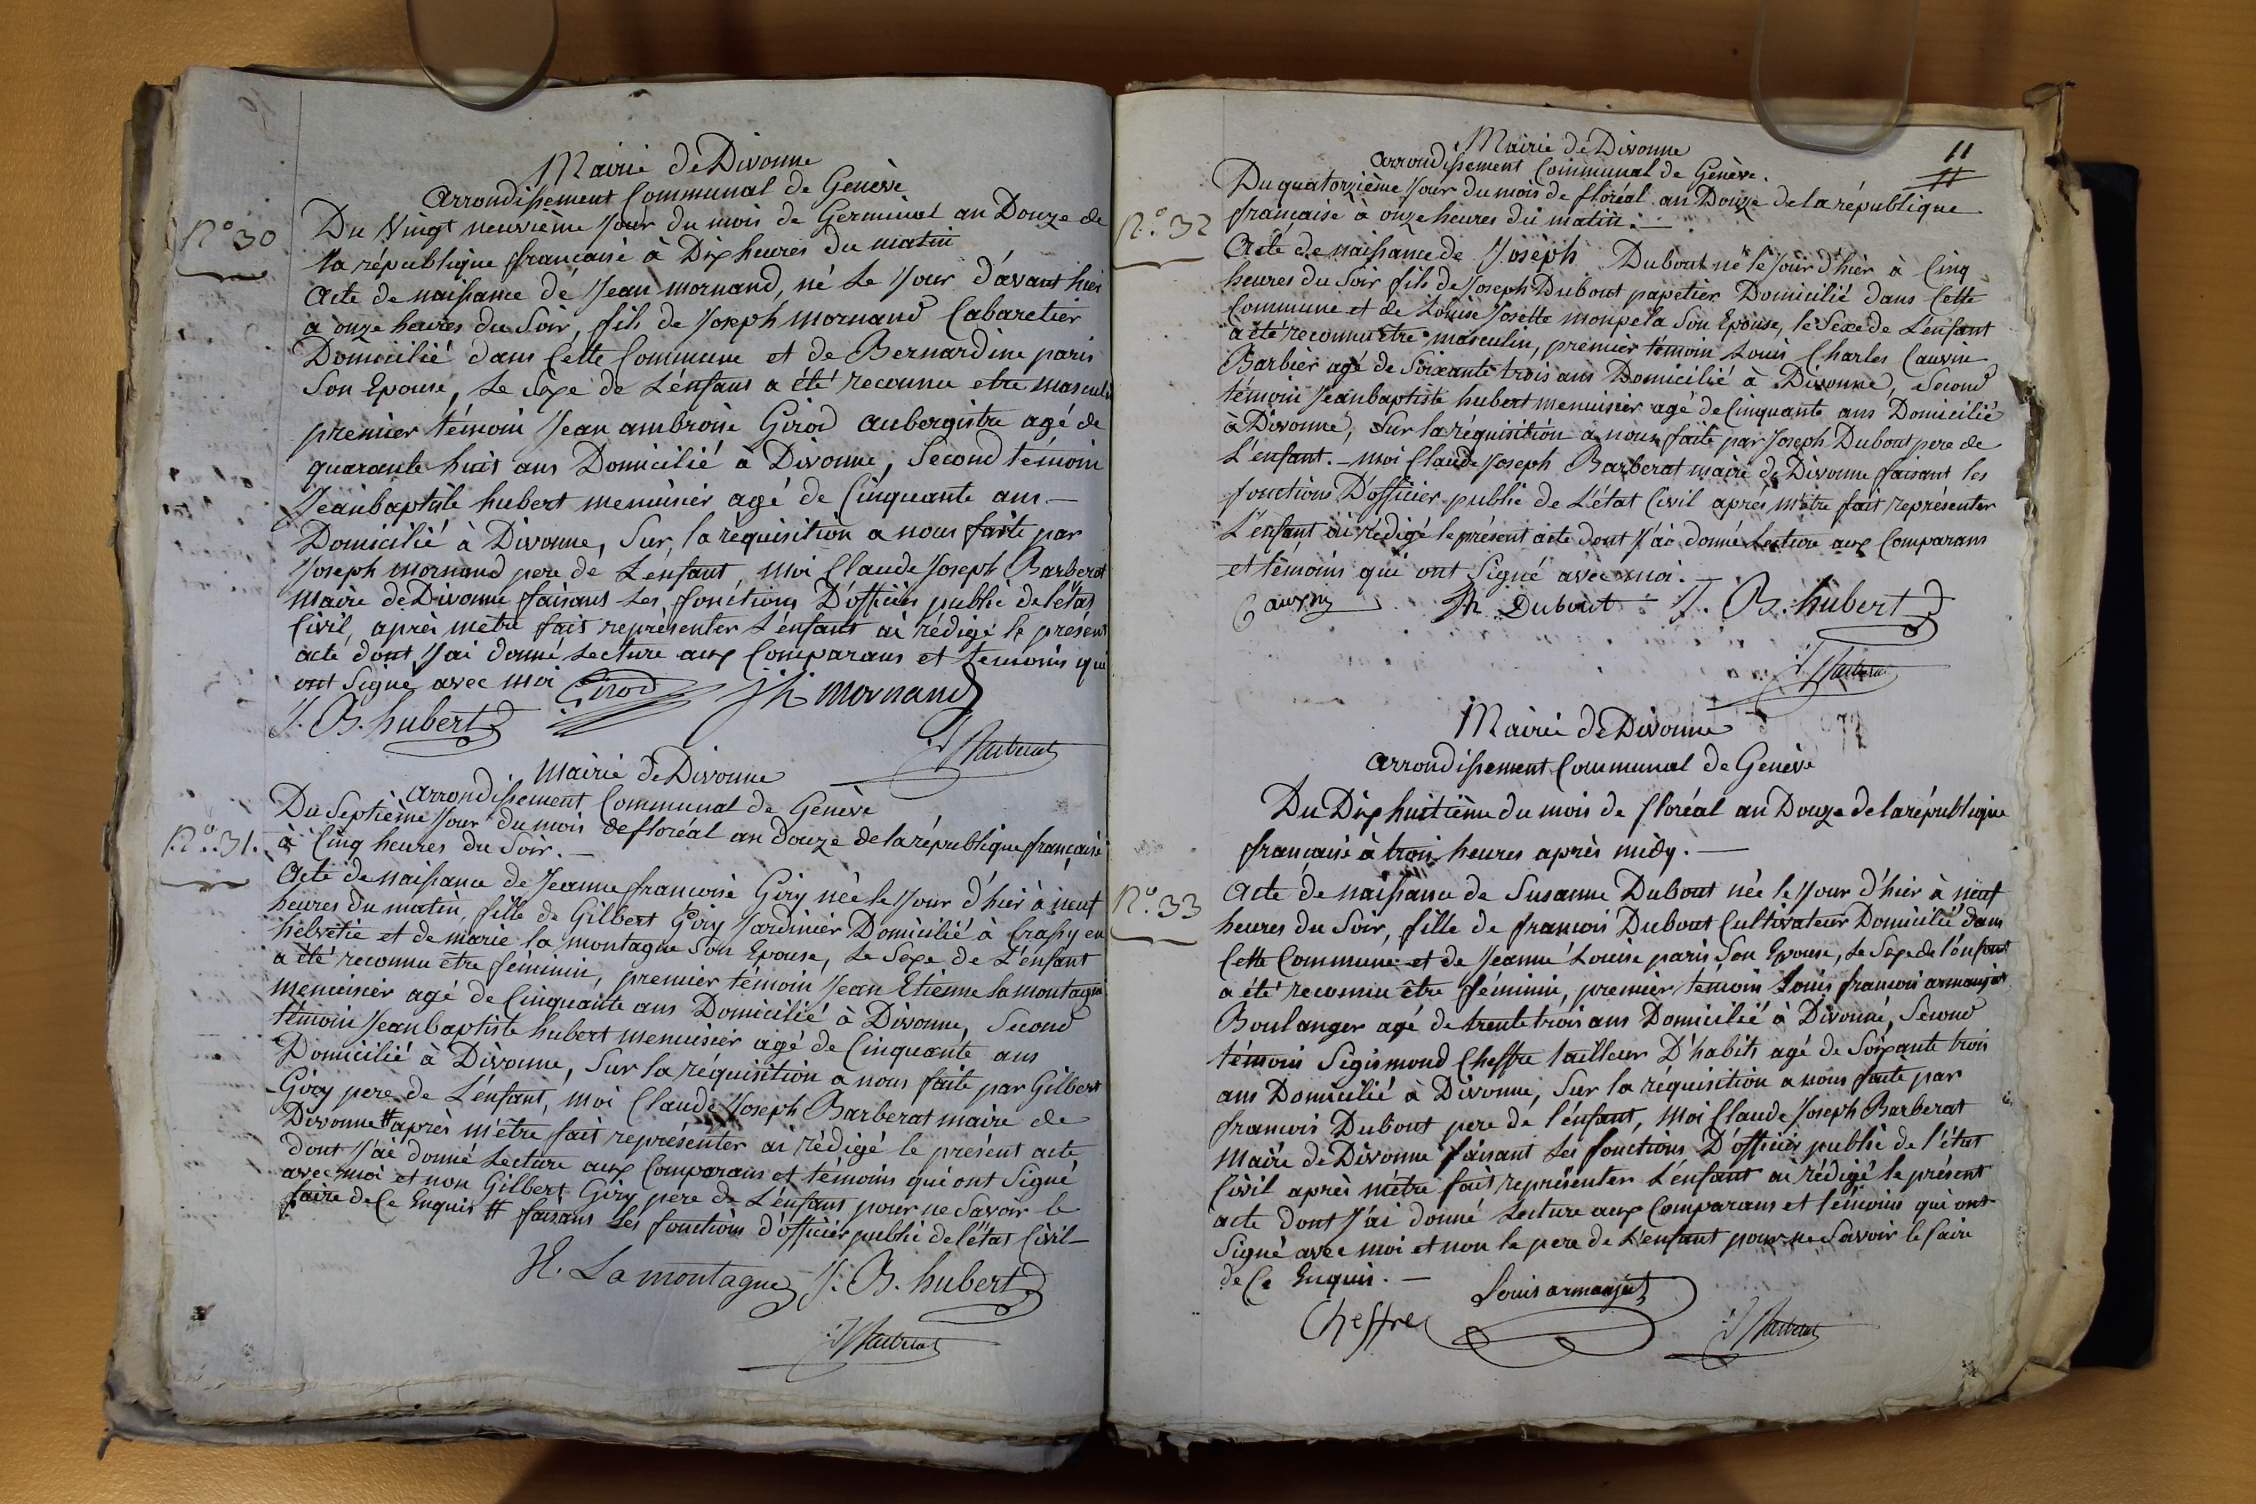 Mairie de Divonne
arrondissement Communal de Genève
N° 30
Du Vingt neuvième jour du mois de Germinal an Douze de
la république française à Dix heures du matin
Acte de naissance de Jean mornand, né le jour d'avant hier
à onze heures du Soir, fils de Joseph mornand Cabaretier
Domicilié dans Cette Commune et de Bernardine paris
Son Epouse, le Sexe de L'énfant a été reconnu etre masculin
premier témoin Jean ambroise Girod aubergiste agé de
quarante huit ans Domicilié à Divonne, Second témoin
Jeanbaptiste hubert menuisier agé de Cinquante ans —
Domicilié à Divonne, Sur la réquisition a nous faite par
Joseph mornand pere de Lenfant, moi Claude Joseph Barberat
Maire de Divonne faisant les fonctions D'officier public de l'état
Civil, après mètre fait représenter L'énfant ai rédigé le présent
acte dont J'ai donné Lecture aux Comparans et temoins qui
ont Signé avec moi
Girod Jh mornand
J. B. hubert
Barberat
Mairie de Divonne
arrondissement Communal de Genève
N° 31.
Du Septième jour du mois de floréal an Douze de la république française
à Cinq heures du Soir. —
Acte de naissance de Jeanne françoise Giry née le Jour d'hier à neuf
heures du matin, fille de Gilbert Giry Jardinier Domicilié à Crassy en
helvétie et de marie la montagne Son Epouse, Le Sexe de L'énfant
a été reconnu être féminin, premier témoin Jean Etienne La montagne
menuisier agé de Cinquante ans Domicilié à Divonne, Second
témoin Jeanbaptiste hubert menuisier agé de Cinquante ans
Domicilié à Divonne, Sur la réquisition a nous faite par Gilbert
Giry pere de L'énfant, moi Claude Joseph Barberat maire de
Divonne # après m'être fait représenter ai rédigé le présent acte
dont J'ai donné Lecture aux Comparans et témoins qui ont Signé
avec moi et non Gilbert Giry père de L'énfant pour ne Savoir le
faire de Ce Enquis # faisant les fonctions d'officier public de l'état Civil —
La montagne J. B. hubert
Barberat
11
Mairie de Divonne
arrondissement Communal de Genève.
N° 32
Du quatorzième Jour du mois de floréal an Douze de la république
française à onze heures du matin. —
Acte de naissance de Joseph Dubout né le jour d'hier à Cinq
heures du Soir fils de Joseph Dubout papetier Domicilié dans Cette
Commune et de Louise Josette monpela Son Epouse, le Sexe de L'enfant
a été reconnu être masculin, premier témoin Louis Charles Cauvin
Barbier agé de Soixante trois ans Domicilié à Divonne, Second
témoin Jeanbaptiste hubert menuisier agé de Cinquante ans Domicilié
à Divonne, Sur la réquisition a nous faite par Joseph Dubout pere de
L'enfant. — moi Claude Joseph Barberat maire de Divonne faisant les
fonctions D'officier public de L'état Civil après m'être fait représenter
L'enfant ai rédigé le présent acte dont J'ai donné Lecture aux Comparans
et témoins qui ont Signé avec moi. —
Cauvin Jh Dubout J. B. hubert
Barberat
Mairie de Divonne
arrondissement Communal de Genève
Du Dix huitième du mois de floréal an Douze de la république
française à trois heures après midy. —
N° 33
Acte de naissance de Susanne Dubout née le jour d'hier à neuf
heures du Soir, fille de françois Dubout Cultivateur Domicilié dans
Cette Commune et de Jeanne Louise paris Son Epouse, le Sexe de l'énfant
a été reconnu être féminin, premier témoin Louis françois armanjat
Boulanger agé de trente trois ans Domicilié à Divonne, Second
témoin Sigismond Cheffre tailleur D'habits agé de Soixante trois
ans Domicilié à Divonne, Sur la réquisition a nous faite par
françois Dubout pere de l'énfant, moi Claude Joseph Barberat
Maire de Divonne faisant Les fonctions D'officier public de l'état
Civil après mètre fait représenter L'énfant ai rédigé le présent
acte dont J'ai donné Lecture aux Comparans et témoins qui ont
Signé avec moi et non le pere de L'enfant pour ne Savoir le faire
de Ce Enquis. —
Louis armanjat
Cheffre
Barberat